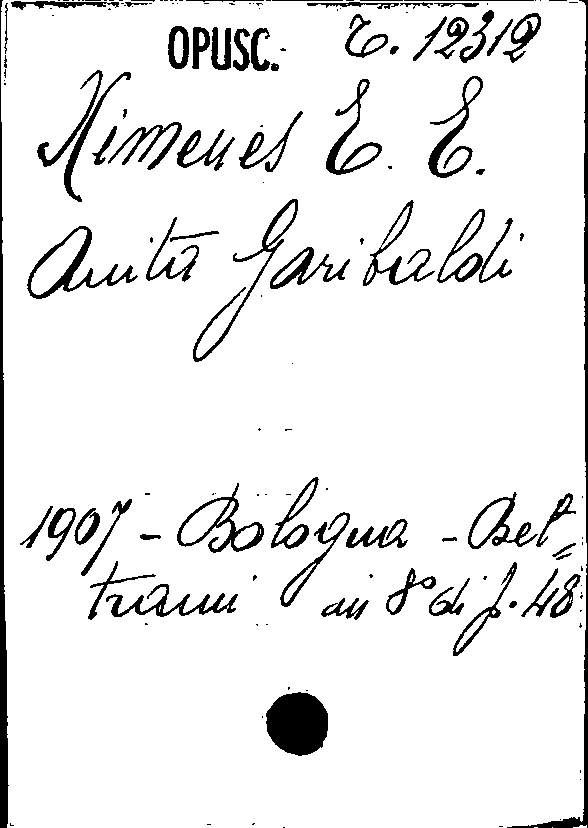 OPUSC. C. 12312
Ximenes E. E.
Anita Garibaldi
1907 - Bologna - Bel=
trami in 8° di p. 48